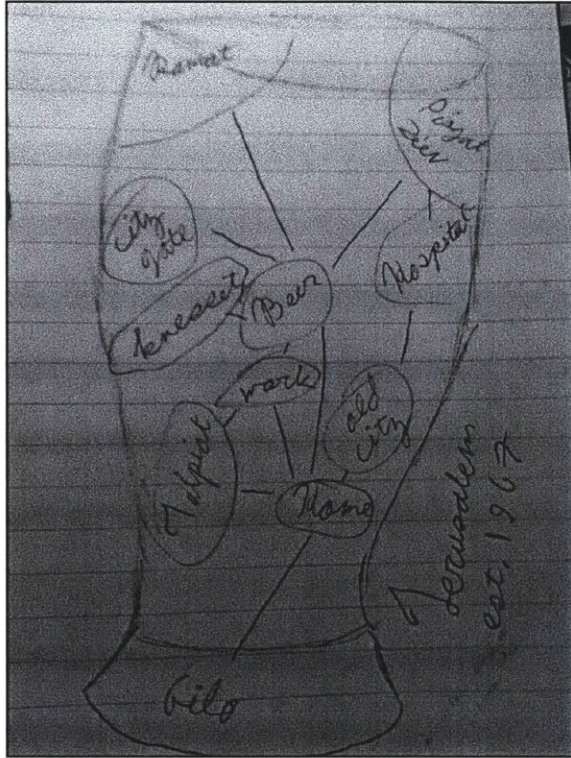 Ramat
Pisgat
Ziev
City
gate
Hospital
knesset
Beer
work
old
city
Talpiot
Home
Jerusalem
est. 1967
Gilo